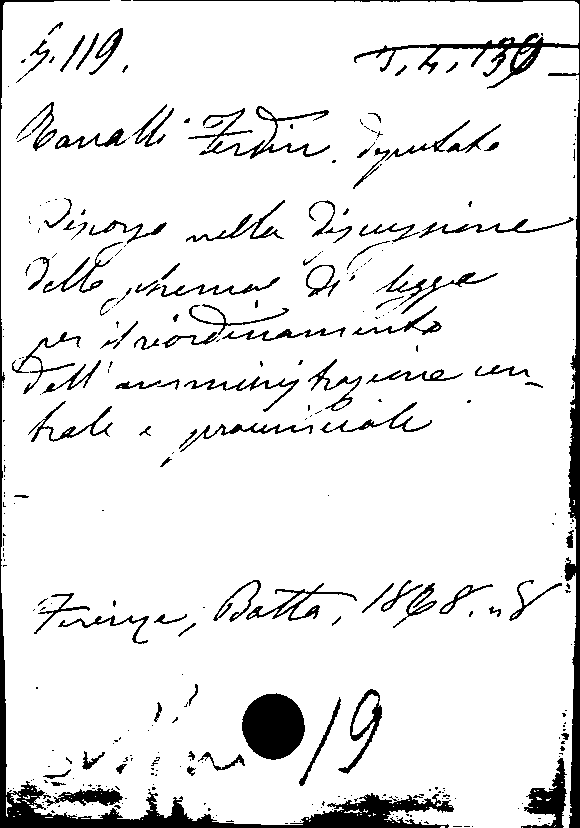 5.119.
5.4.139
Ravalli Ferdin. deputato
Discorso nella discussione
dello schema di legge
per il riordinamento
dell'amministrazione cen-
trale e provinciale
Firenze, Botta, 1868. in 8
19